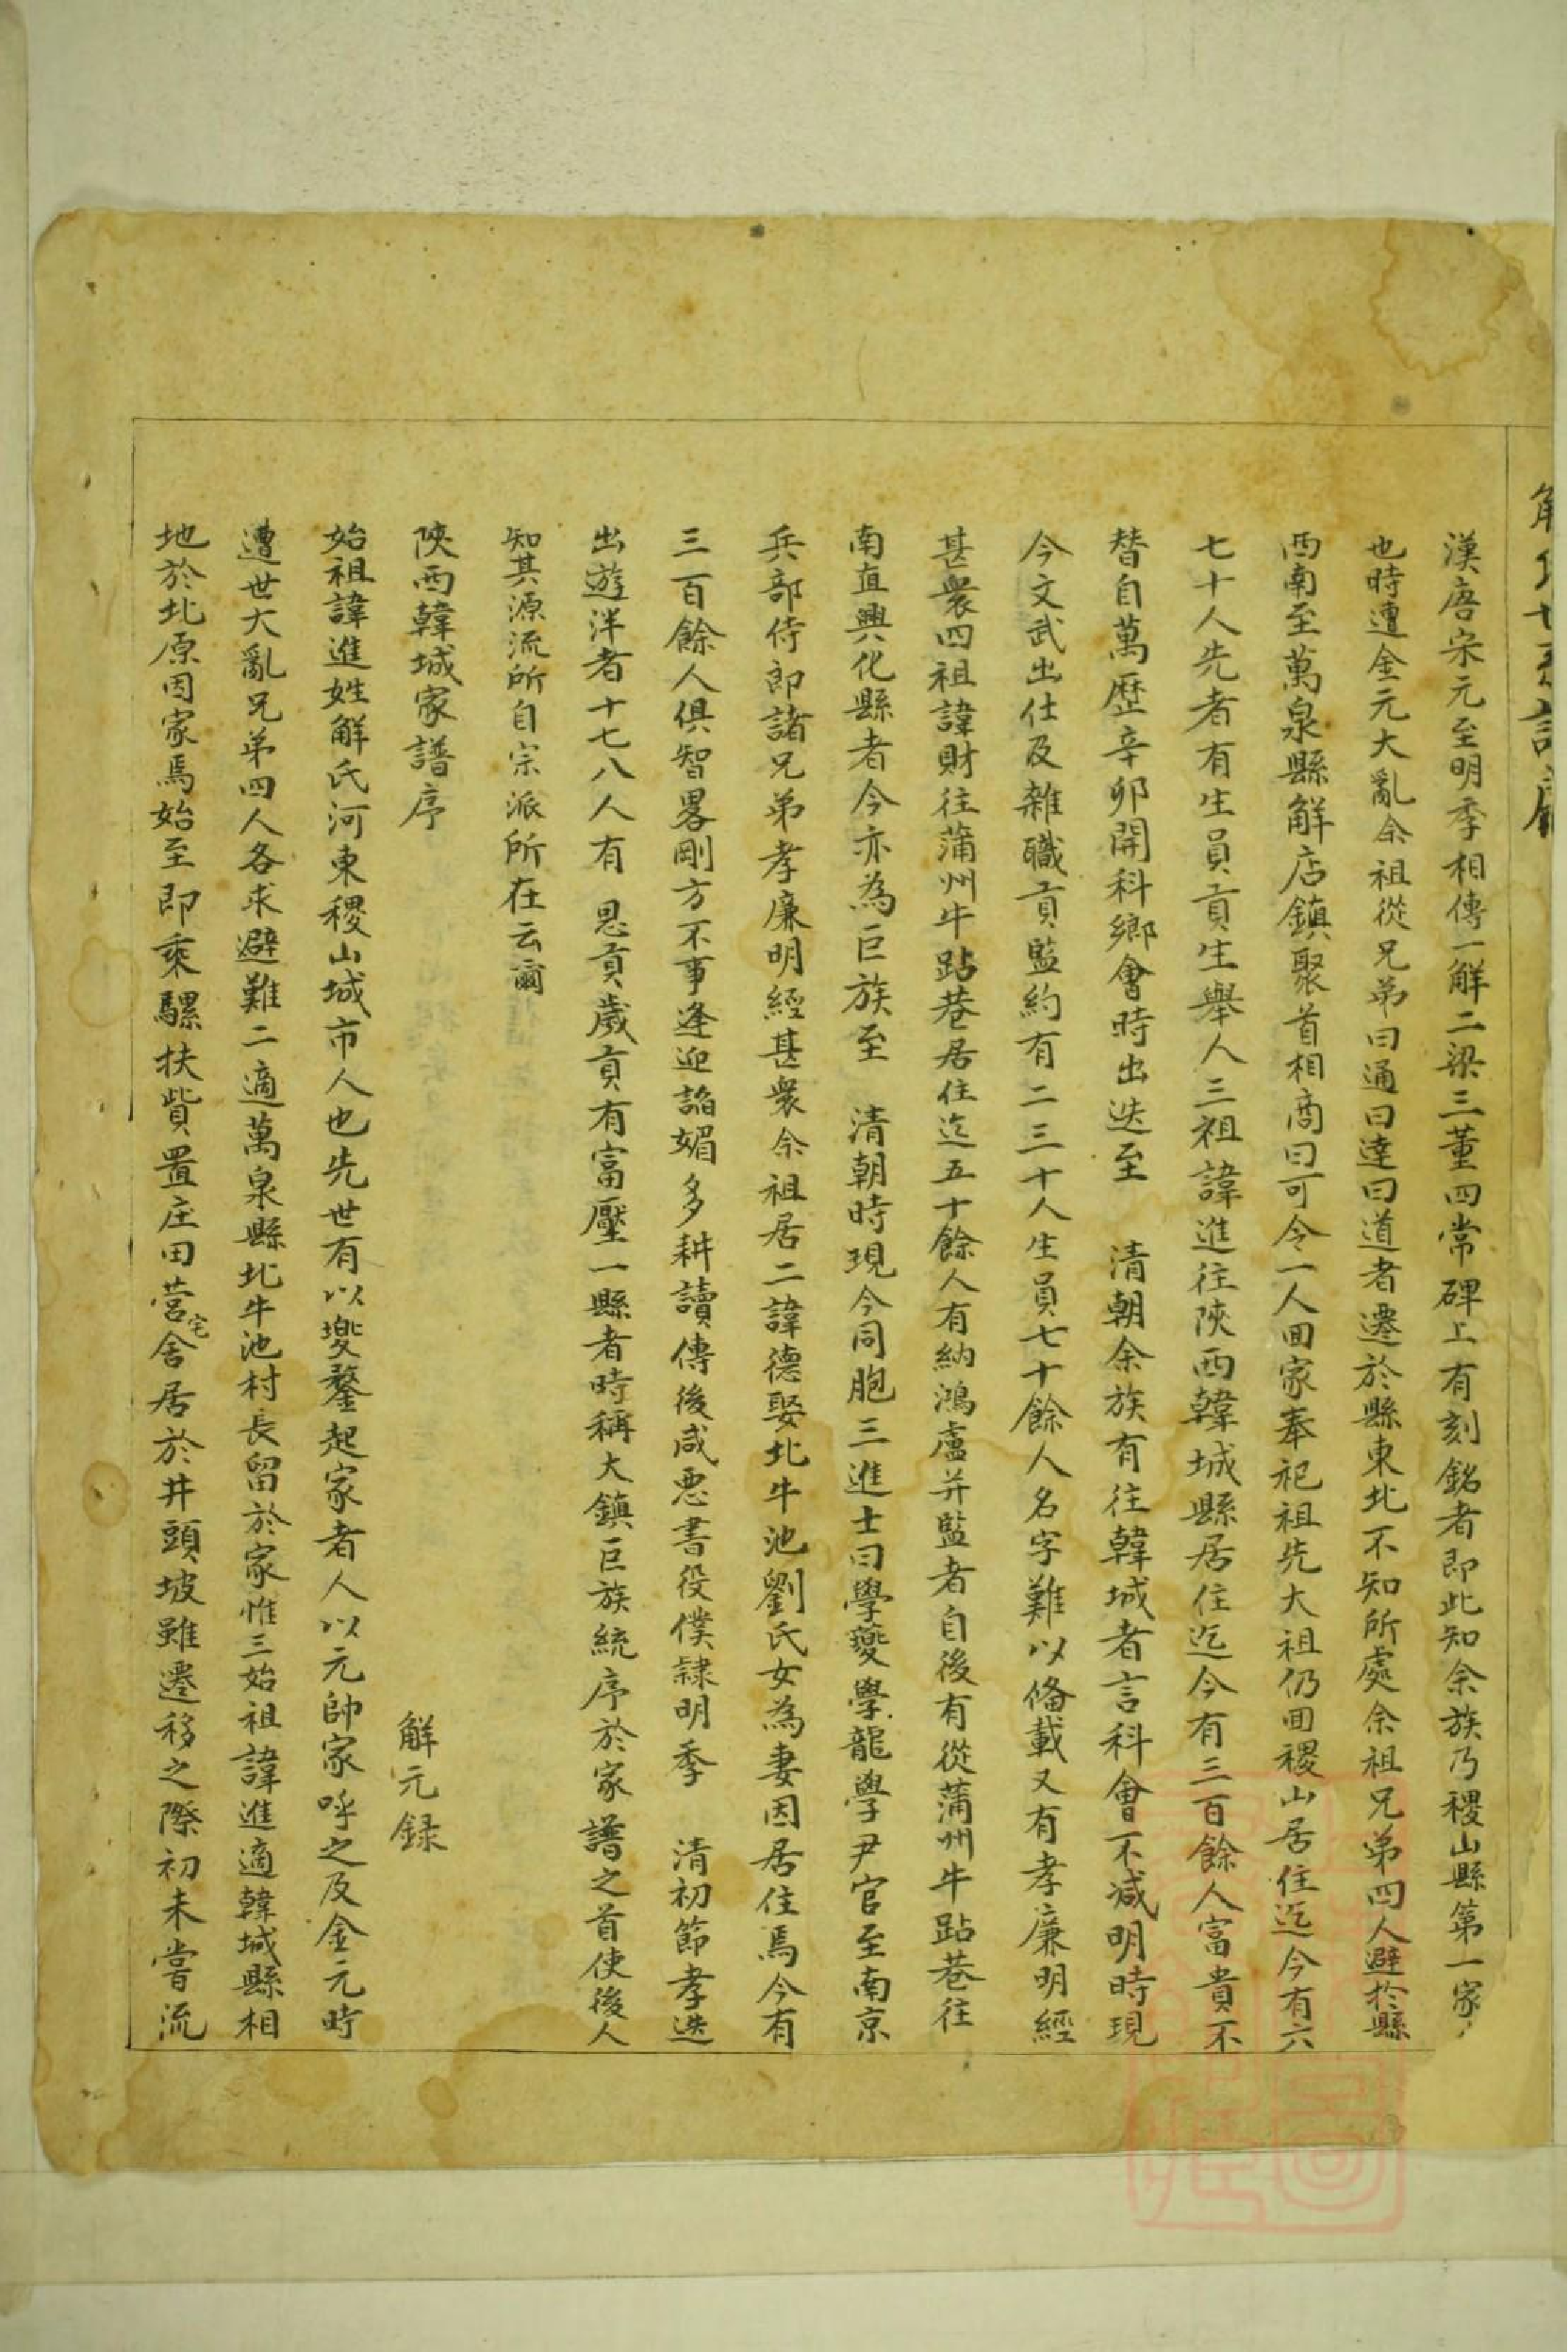 漢唐宋元至明季相傳一解二梁三董四常碑上有刻銘者即此知余族乃稷山縣第一家
也時遭金元大亂余祖從兄弟曰通曰達曰道者遷於縣東北不知所處余祖兄弟四人避於縣
西南至萬泉縣解店鎮聚首相商曰可令一人囬家奉祀祖先大祖仍囬稷山居住迄今有六
七十人先者有生員貢生舉人三祖諱進往陝西韓城縣居住迄今有三百餘人富貴不
替自萬歷辛卯開科鄉會時出迭至 清朝余族有往韓城者言科會不減明時現
今文武出仕及雜職貢監約有二三十人生員七十餘人名字難以俻載又有孝廉明經
甚衆四祖諱財往蒲州牛跕巷居住迄五十餘人有納鴻盧并監者自後有從蒲州牛跕巷往
南直興化縣者今亦為巨族至 清朝時現今同胞三進士曰學夔學龍學尹官至南京
兵部侍郎諸兄弟孝廉明經甚衆余祖居二諱德娶北牛池劉氏女為妻因居住焉今有
三百餘人俱智畧剛方不事逢迎謟媚多耕讀傳後咸惡書役僕隸明季 清初節孝迭
出遊泮者十七八人有 恩貢歲貢有富壓一縣者時稱大鎮巨族統序於家譜之首使後人
知其源流所自宗派所在云爾
陝西韓城家譜序
解元錄
始祖諱進姓解氏河東稷山城市人也先世有以㸑鏊起家者人以元帥家呼之及金元時
遭世大亂兄弟四人各求避難二適萬泉縣北牛池村長留於家惟三始祖諱進適韓城縣相
地於北原因家焉始至即乘騾扶貲置庄田营宅舍居於井頭坡雖遷移之際初未嘗流